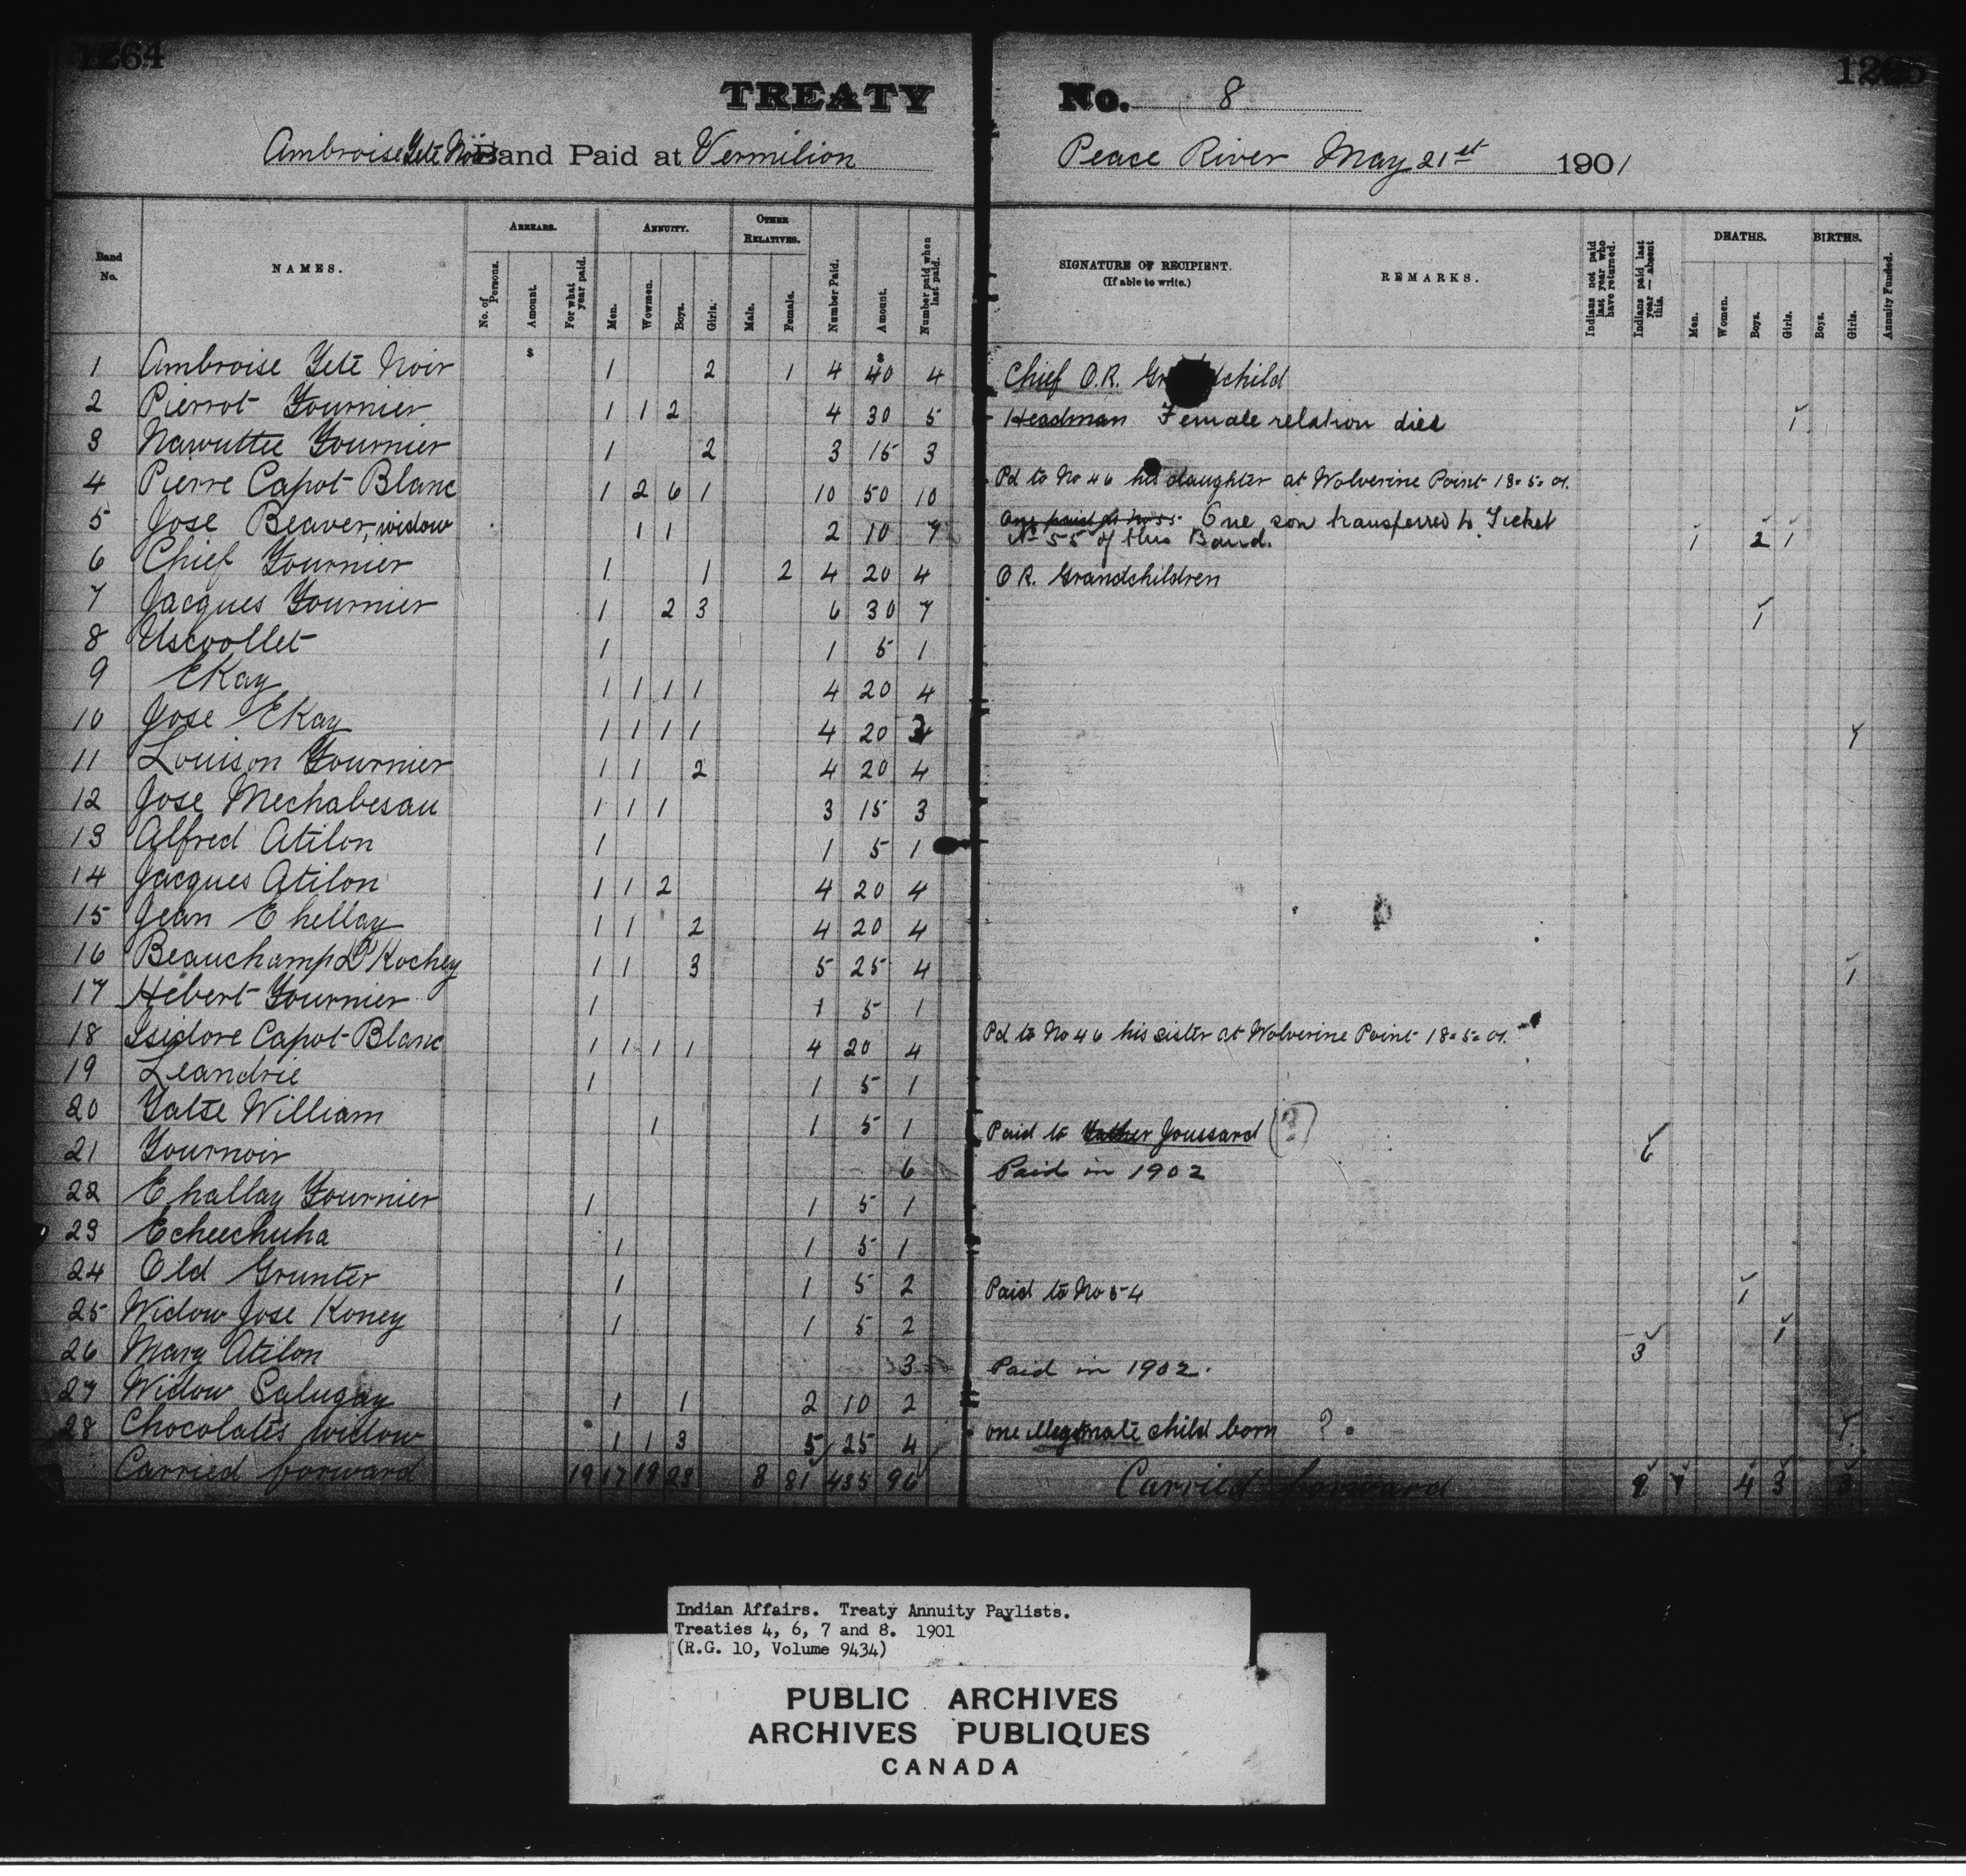 1264
TREATY No. 8
Ambroise Tete Noir Band Paid at Vermilion Peace River May 21st 1901
Band No. NAMES. ARREARS. ANNUITY. OTHER RELATIVES. SIGNATURE OF RECIPIENT. (If able to write.) REMARKS. DEATHS. BIRTHS.
No. of Persons. Amount. For what year paid. Men. Women. Boys. Girls. Male. Female. Number Paid. Amount. Number paid when last paid. Indians not paid last year who have returned. Indians paid last year — absent this. Men. Women. Boys. Girls. Boys. Girls. Annuity Funded.
$ $
1 Ambroise Tete Noir 1 2 1 4 40 4 Chief O.R. child
2 Pierrot Fournier 1 1 2 4 30 5 Headman Female relation died 1
3 Nawuttee Fournier 1 2 3 15 3
4 Pierre Capot Blanc 1 2 6 1 10 50 10 Pd to No 46 his daughter at Wolverine Point 18-5-01.
5 Jose Beaver, widow 1 1 2 10 7 One paid at No 55. One son transferred to Ticket
No 55 of this Band. 1 2 1
6 Chief Fournier 1 1 2 4 20 4 O.R. Grandchildren
7 Jacques Fournier 1 2 3 6 30 7 1
8 Uscoollet 1 1 5 1
9 EKay 1 1 1 1 4 20 4
10 Jose EKay 1 1 1 1 4 20 3 1
11 Louison Fournier 1 1 2 4 20 4
12 Jose Mechabesau 1 1 1 3 15 3
13 Alfred Atilon 1 1 5 1
14 Jacques Atilon 1 1 2 4 20 4
15 Jean Ehellay 1 1 2 4 20 4
16 Beauchamp D'Kochey 1 1 3 5 25 4 1
17 Hebert Fournier 1 1 5 1
18 Isidore Capot Blanc 1 1 1 1 4 20 4 Pd to No 46 his sister at Wolverine Point 18-5-01.
19 Leandrie 1 1 5 1
20 Yatse William 1 1 5 1 Paid to Father Joussard (?)
21 Fournoir 6 Paid in 1902 6
22 Ehallay Fournier 1 1 5 1
23 Echeechuha 1 1 5 1
24 Old Grunter 1 1 5 2 Paid to No 54 1
25 Widow Jose Koney 1 1 5 2 1
26 Mary Atilon 3 Paid in 1902. 3
27 Widow Salugay 1 1 2 10 2
28 Chocolates widow 1 1 3 5 25 4 one illegitimate child born ? 1
Carried forward 19 17 19 23 8 81 435 96 Carried forward 9 1 4 3 3
Indian Affairs. Treaty Annuity Paylists.
Treaties 4, 6, 7 and 8. 1901
(R.G. 10, Volume 9434)
PUBLIC ARCHIVES
ARCHIVES PUBLIQUES
CANADA